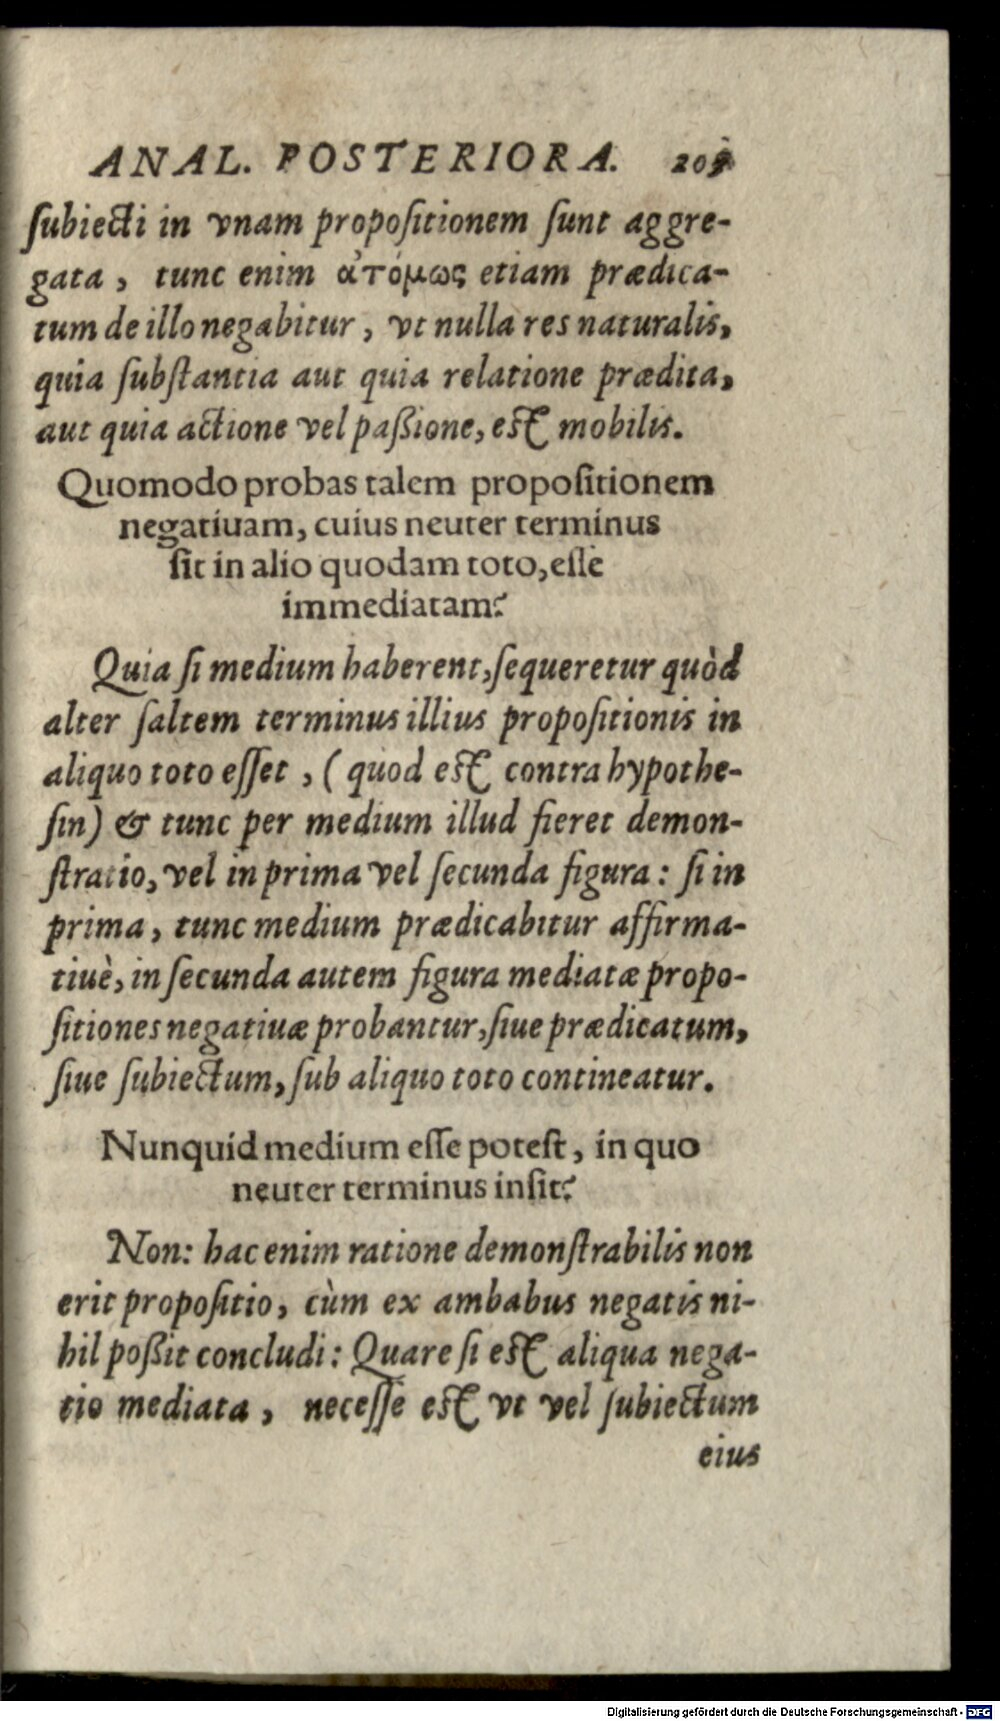 ANAL. POSTERIORA. 209
ſubiecti in vnam propoſitionem ſunt aggre-
gata, tunc enim ἀτόμως etiam prædica-
tum de illo negabitur, vt nulla res naturalis,
quia ſubſtantia aut quia relatione prædita,
aut quia actione vel paßione, eſt mobilis.
Quomodo probas talem propoſitionem
negatiuam, cuius neuter terminus
ſit in alio quodam toto, eſſe
immediatam?
Quia ſi medium haberent, ſequeretur quòd
alter ſaltem terminus illius propoſitionis in
aliquo toto eſſet, (quod eſt contra hypothe-
ſin) & tunc per medium illud fieret demon-
ſtratio, vel in prima vel ſecunda figura: ſi in
prima, tunc medium prædicabitur affirma-
tiuè, in ſecunda autem figura mediatæ propo-
ſitiones negatiuæ probantur, ſiue prædicatum,
ſiue ſubiectum, ſub aliquo toto contineatur.
Nunquid medium eſſe poteſt, in quo
neuter terminus inſit?
Non: hac enim ratione demonſtrabilis non
erit propoſitio, cùm ex ambabus negatis ni-
hil poßit concludi: Quare ſi eſt aliqua nega-
tio mediata, neceſſe eſt vt vel ſubiectum
eius
Digitalisierung gefördert durch die Deutsche Forschungsgemeinschaft - DFG